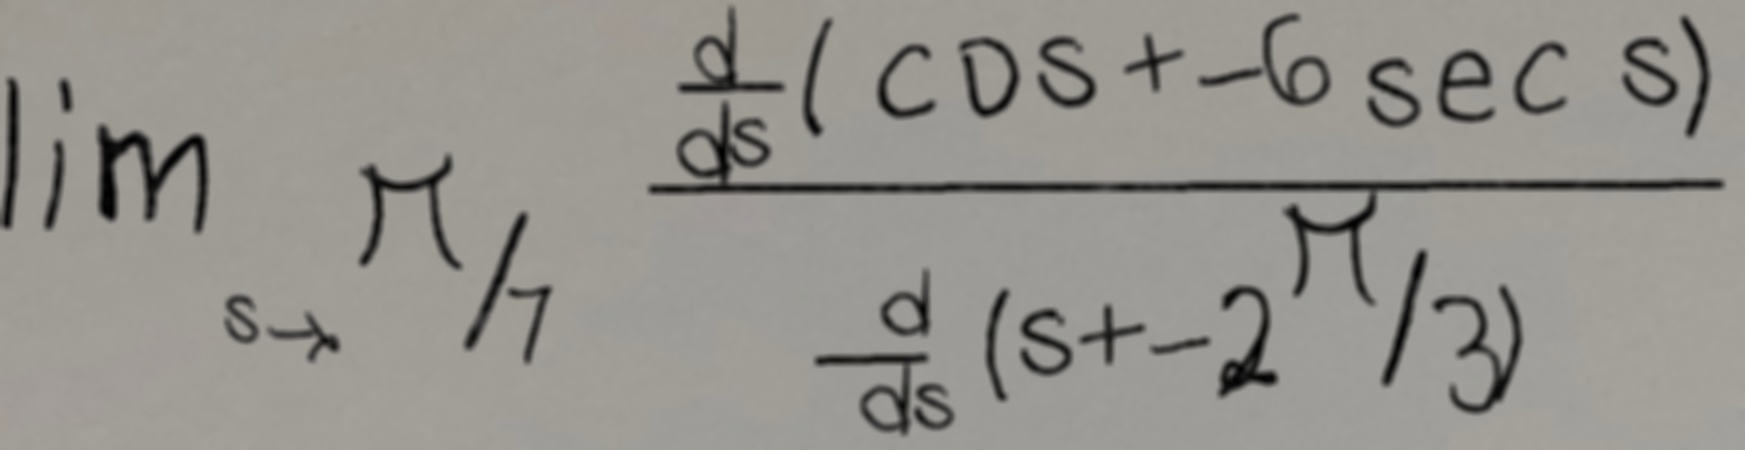 \lim_{s \to \pi/7} \frac{\frac{d}{ds}(cos+-6 sec s)}{\frac{d}{ds}(s+-2\pi/3)}